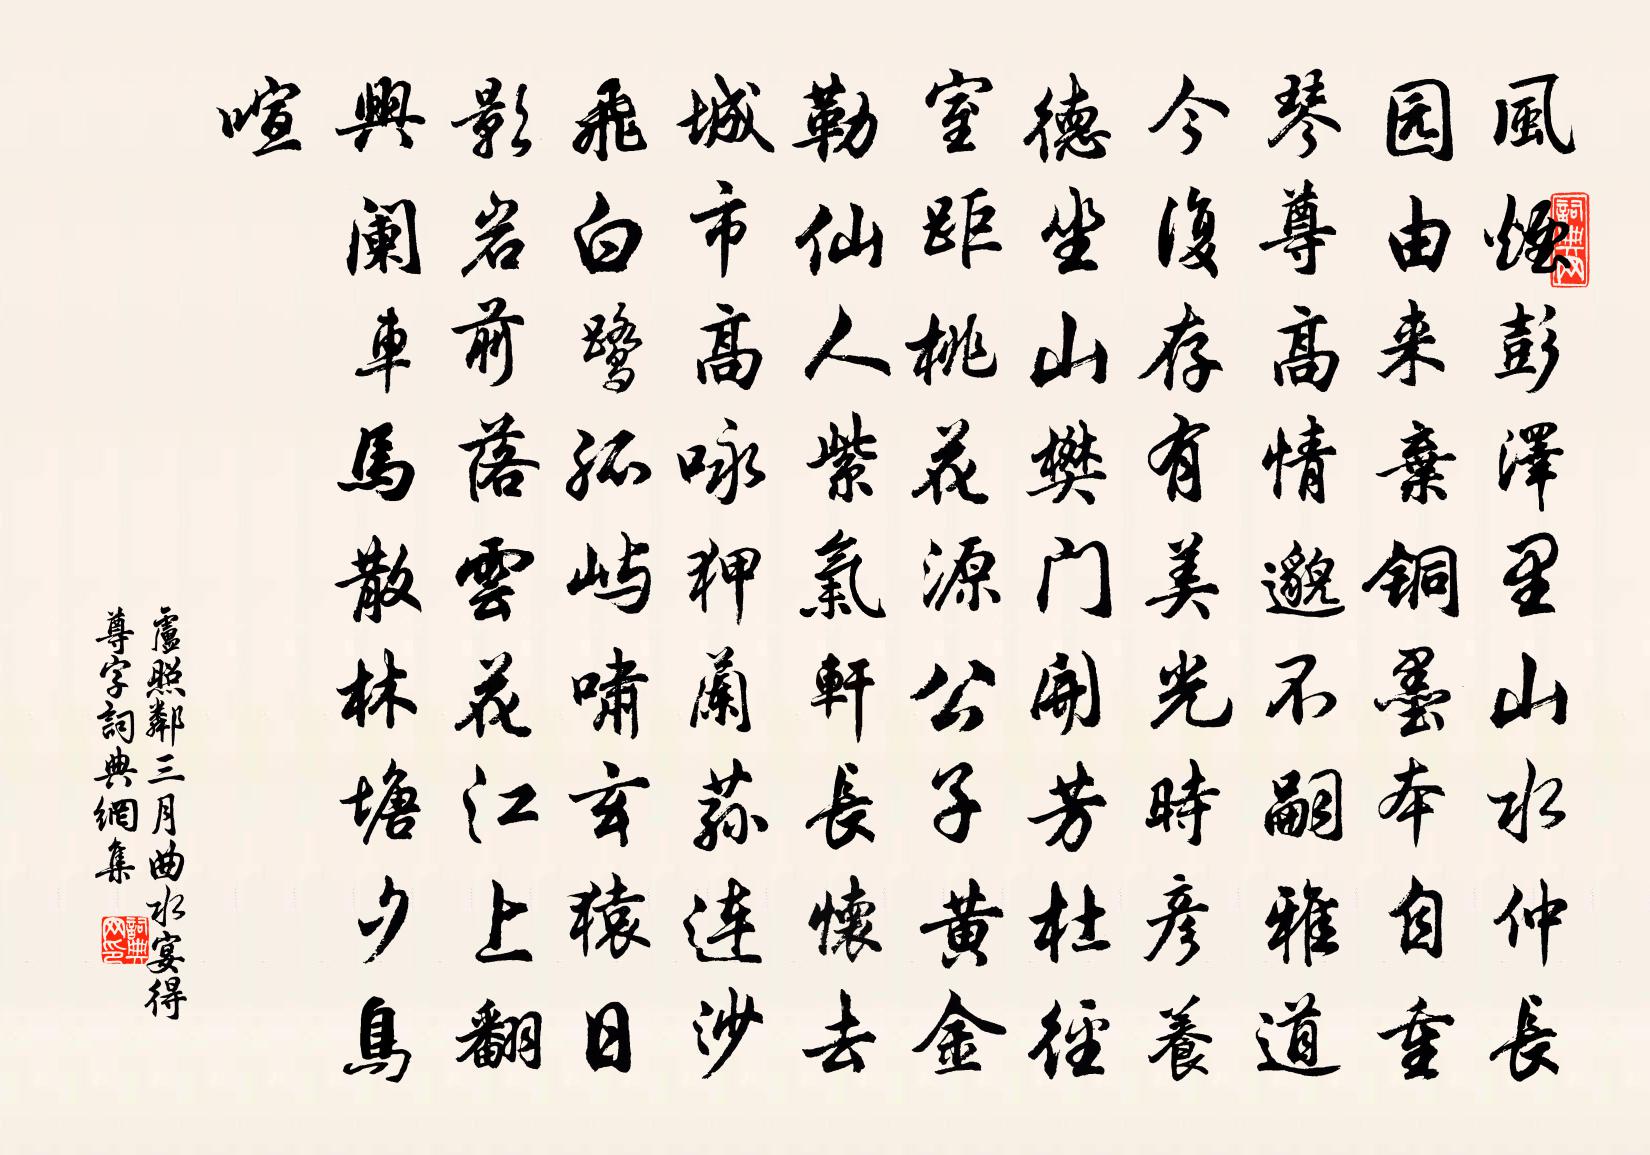 風煙彭澤里山水仲長
园由来棄銅墨本自重
琴尊高情邈不嗣雅道
今復存有美光時彦養
德坐山樊门開芳杜徑
室距桃花源公子黄金
勒仙人紫氣軒長懷去
城市高咏狎蘭蓀連沙
飛白鹭孤屿嘯玄猿日
影岩前落雲花江上翻
興阑車馬散林塘夕鳥
喧
盧照鄰三月曲水宴得
尊字詞典網集
詞典网
詞典网印